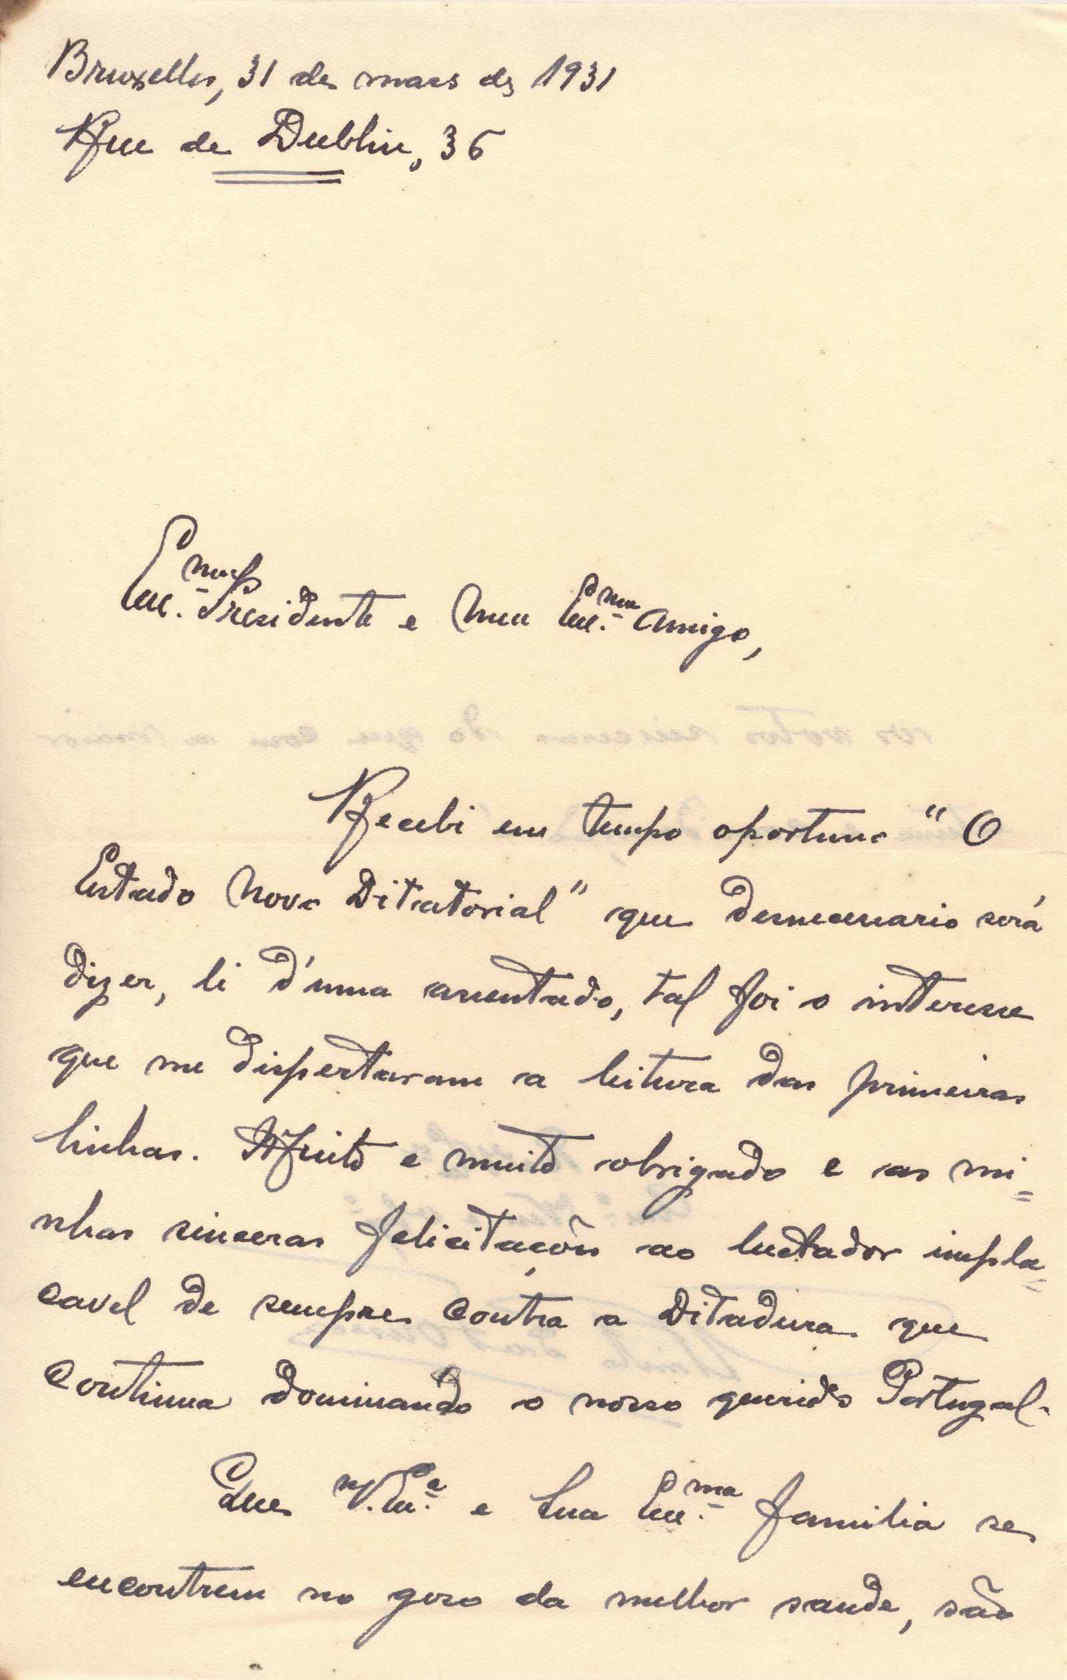 Bruxelles, 31 de mars de 1931
Rue de Dublin, 36
Exc.mo Presidente e Meu Exc.mo Amigo,
Recebi em tempo oportuno "O
Estado Novo Ditatorial" que desnecessario será
dizer, li d'uma assentada, tal foi o interesse
que me dispertaram a leitura das primeiras
linhas. Muito e muito obrigado e as mi=
nhas sinceras felicitações ao luctador impla=
cavel de sempre contra a Ditadura que
continua dominando o nosso querido Portugal.
Que V. Ex.a e Sua Exc.ma Familia se
encontrem no goso da melhor saude, são